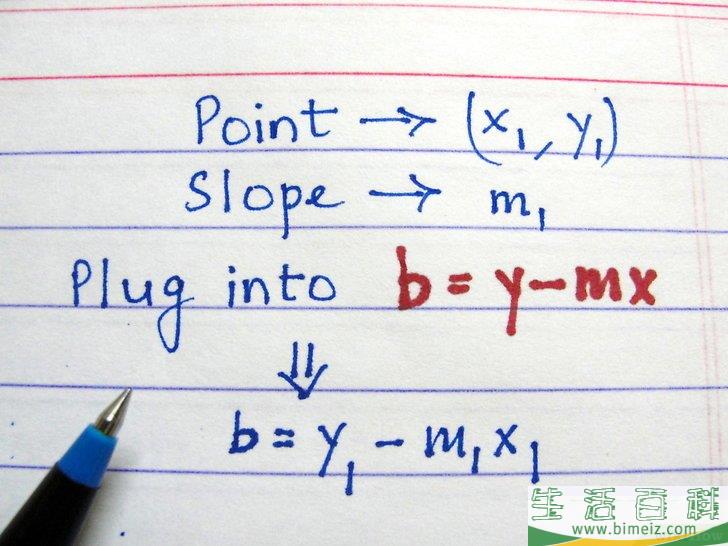 Point → (x₁, y₁)
Slope → m₁
Plug into b = y - mx
⇓
b = y₁ - m₁x₁
生活百科
www.bimeiz.com